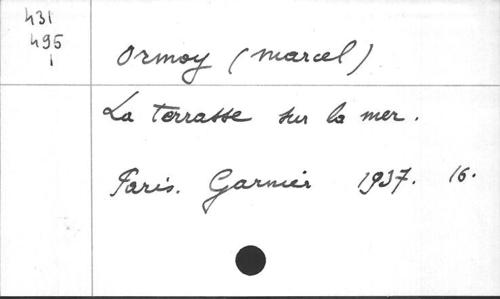 431
495
1
Ormoy (Marcel)
La Terrasse sur la mer.
Paris. Garnier 1937. 16.